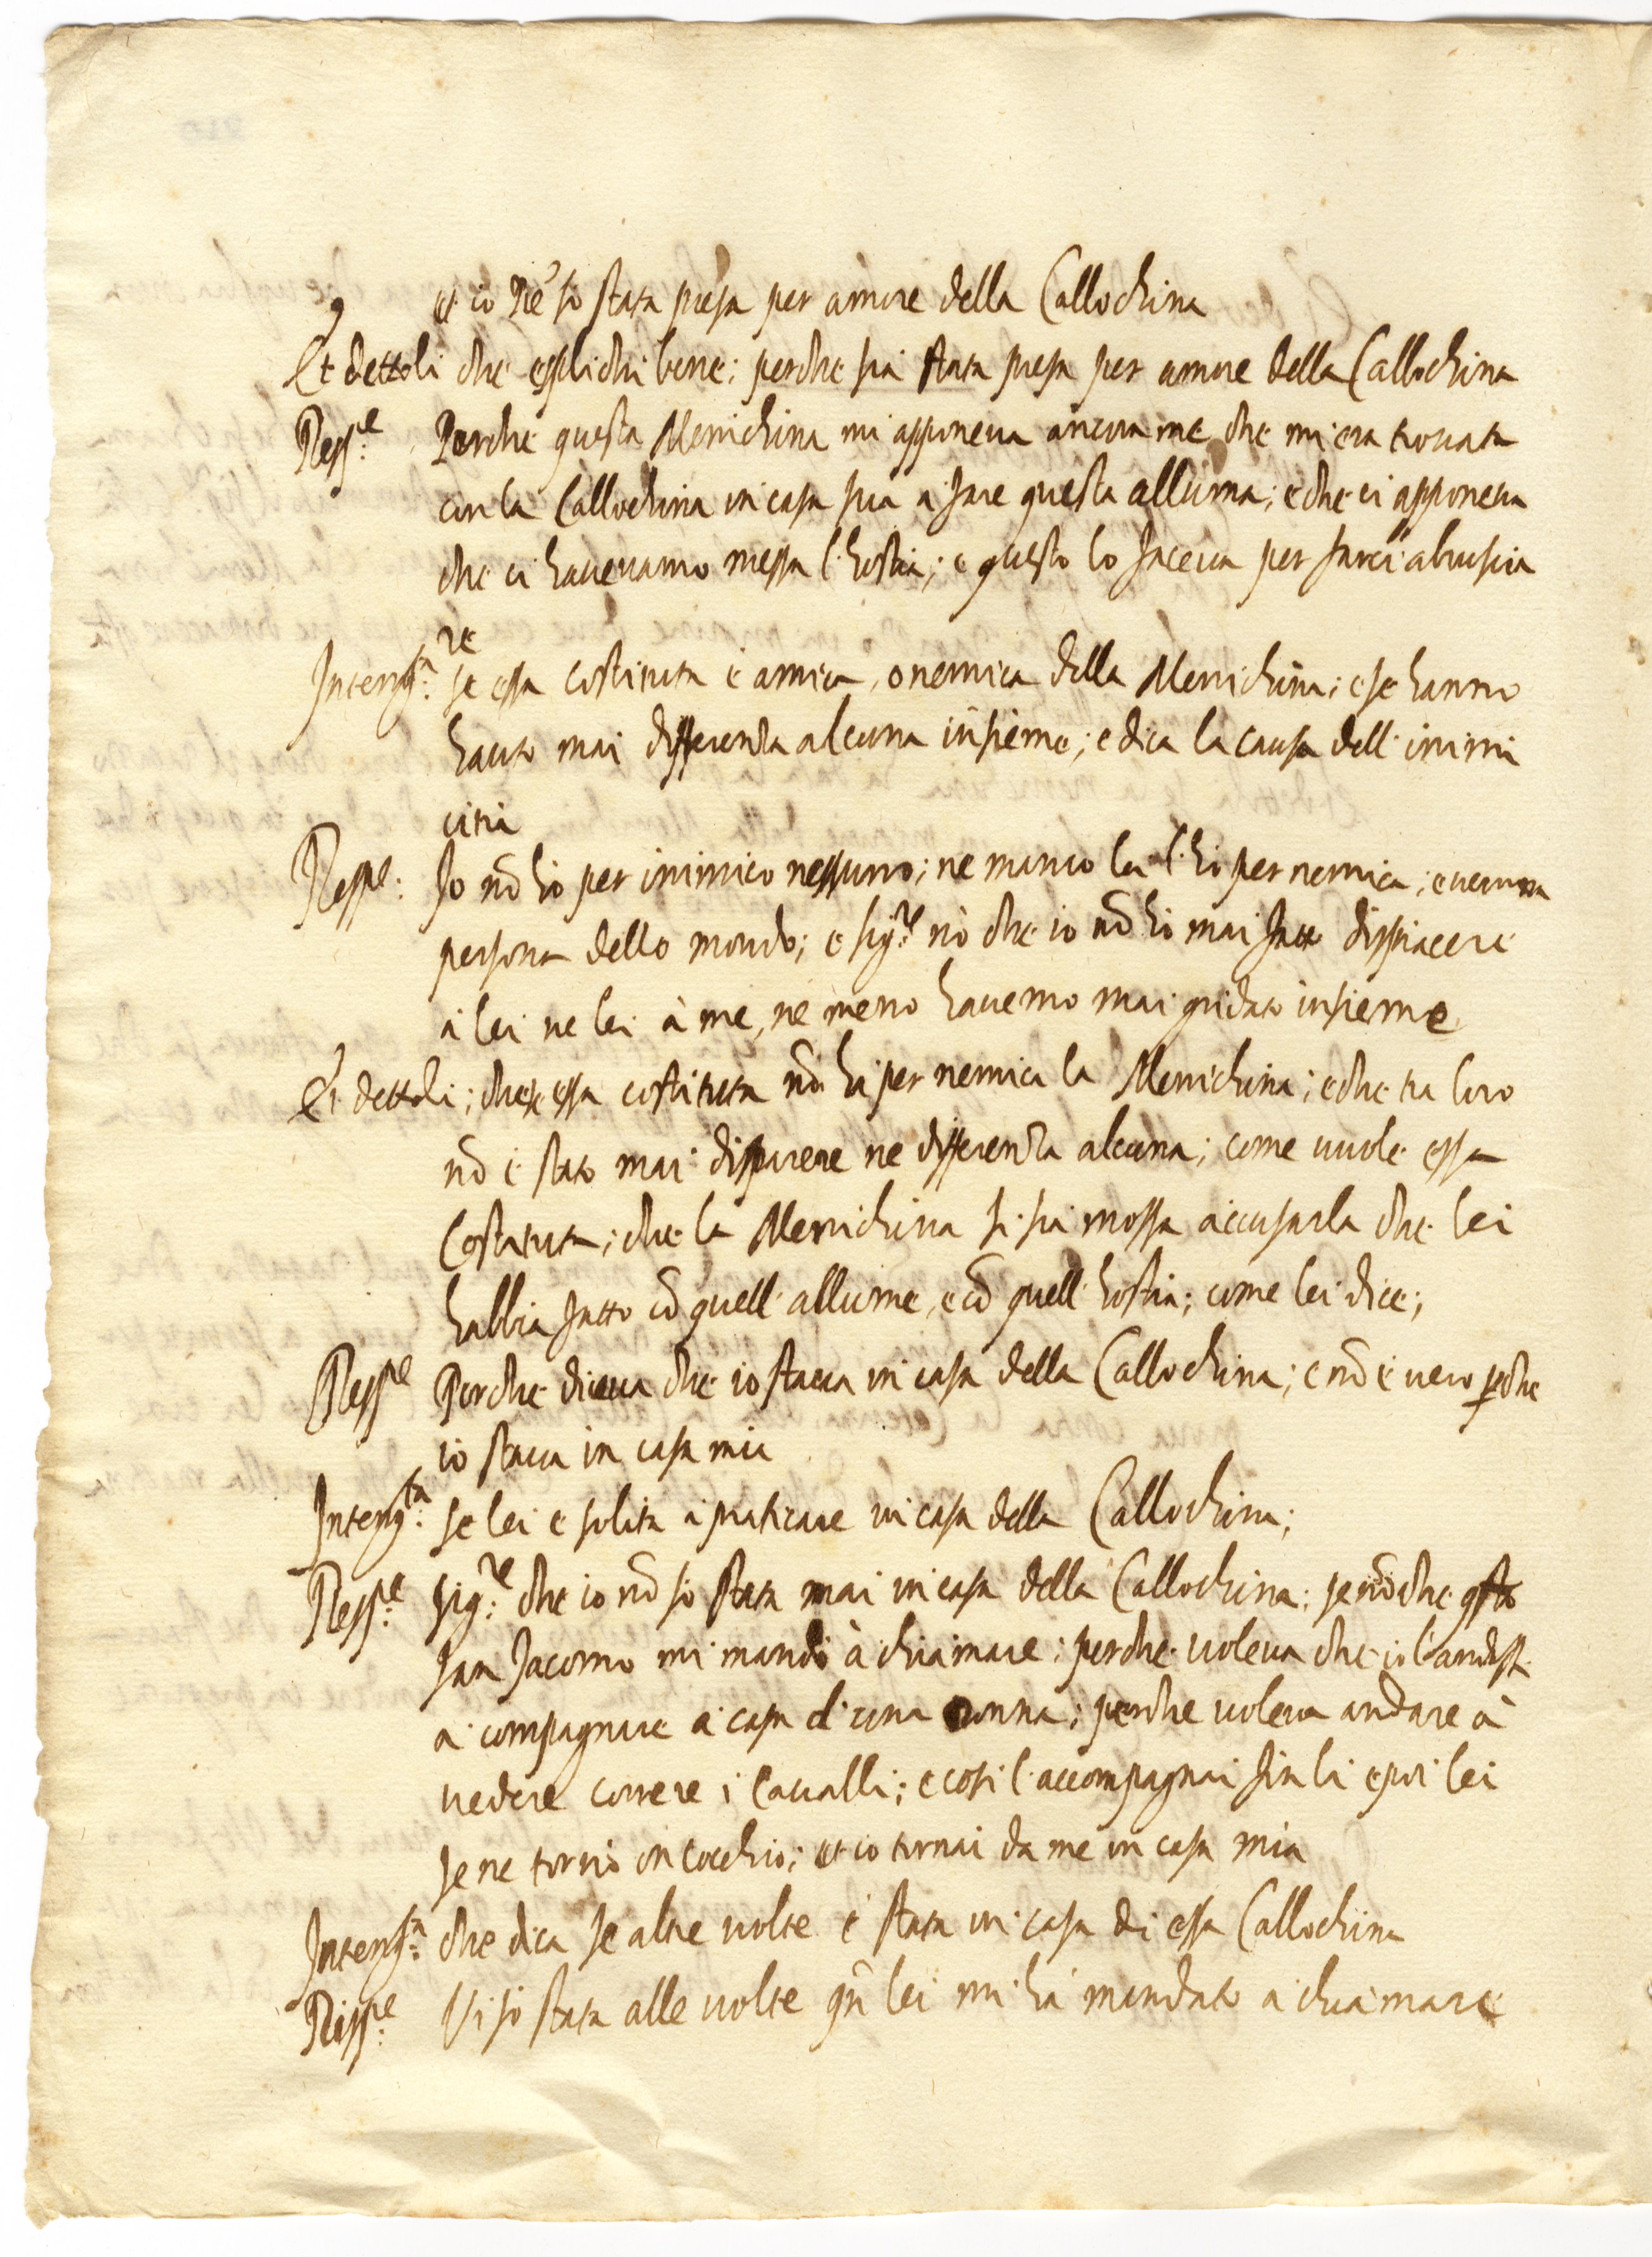 et io nè so stata presa per amore della Callochina
Et dettoli che esplichi bene; perche sia stata presa per amore della Callochina
Resp.e Perche questa Menichina mi apponeua ancora me che mi era trouata
con la Callochina in casa sua a fare questa alluma; e che ci apponeua
che ci haueuamo messa l'hostia; e questo lo faceua per farci abruscia
re
Interog.ta se essa costituta è amica, o nemica della Menichina; e se hanno
hauto mai differenza alcuna insieme; e dica la causa dell'inimi
citia
Resp.e: Io nō hò per inimico nessuno; ne manco lei l'hò per nemica; e ueruna
persona dello mondo; e sig.re nò che io nō hò mai fatto dispiacere
à lei ne lei à me, ne meno hauemo mai gridato insieme
Et dettoli; che se essa costituta nō hà per nemica la Menichina; e che tra loro
nō è stato mai disparere ne differenza alcuna; come uuole essa
Costituta; che la Menichina si sia mossa accusarla che lei
habbia fatto cō quell'allume, e cō quell'hostia; come lei dice;
Resp.e Perche diceua che io staua in casa della Callochina; e nō è uero perche
io staua in casa mia
Interog.ta se lei è solita à praticare in casa della Callochina;
Resp.e sig.re che io nō so stata mai in casa della Callochina; se nō che qsto
Jan Jacomo mi mandò à chiamare; perche uoleua che io l'andassi
a compagnare à casa d'una donna; perche uoleua andare à
uedere correre i Caualli; e cosi l'accompagnai sin lì e poi lei
se ne tornò in cocchio; et io tornai da me in casa mia
Interog.ta che dica se altre uolte è stata in casa di essa Callochina
Resp.e Vi sò stata alle uolte qn lei mi hà mandato à chiamare